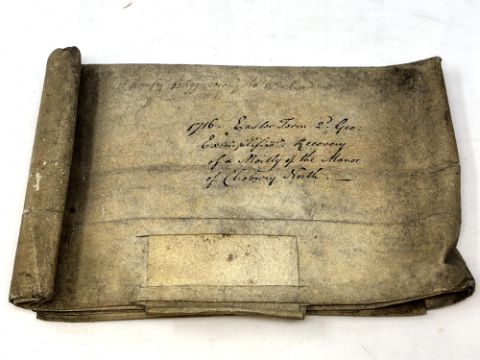 1716. Easter Term 2d. Geo:
Exemplified Recovery
of a Moitty of the Manor
of Cleobury North. —